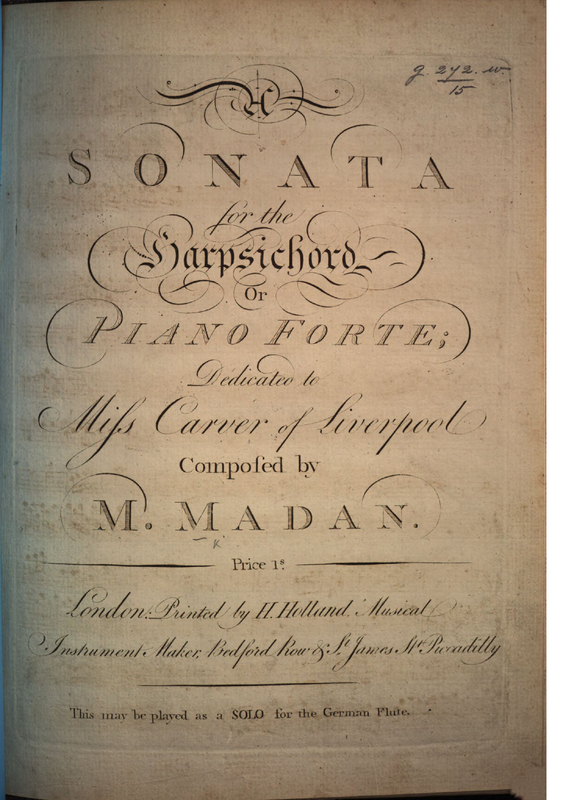 g. 272. w.
15
A
SONATA
for the
Harpsichord
Or
PIANO FORTE;
Dedicated to
Miſs Carver of Liverpool
Compoſed by
M. MADAN.
Price 1s.
London: Printed by H. Holland, Musical
Instrument Maker, Bedford Row & St. James St. Piccadilly
This may be played as a SOLO for the German Flute.